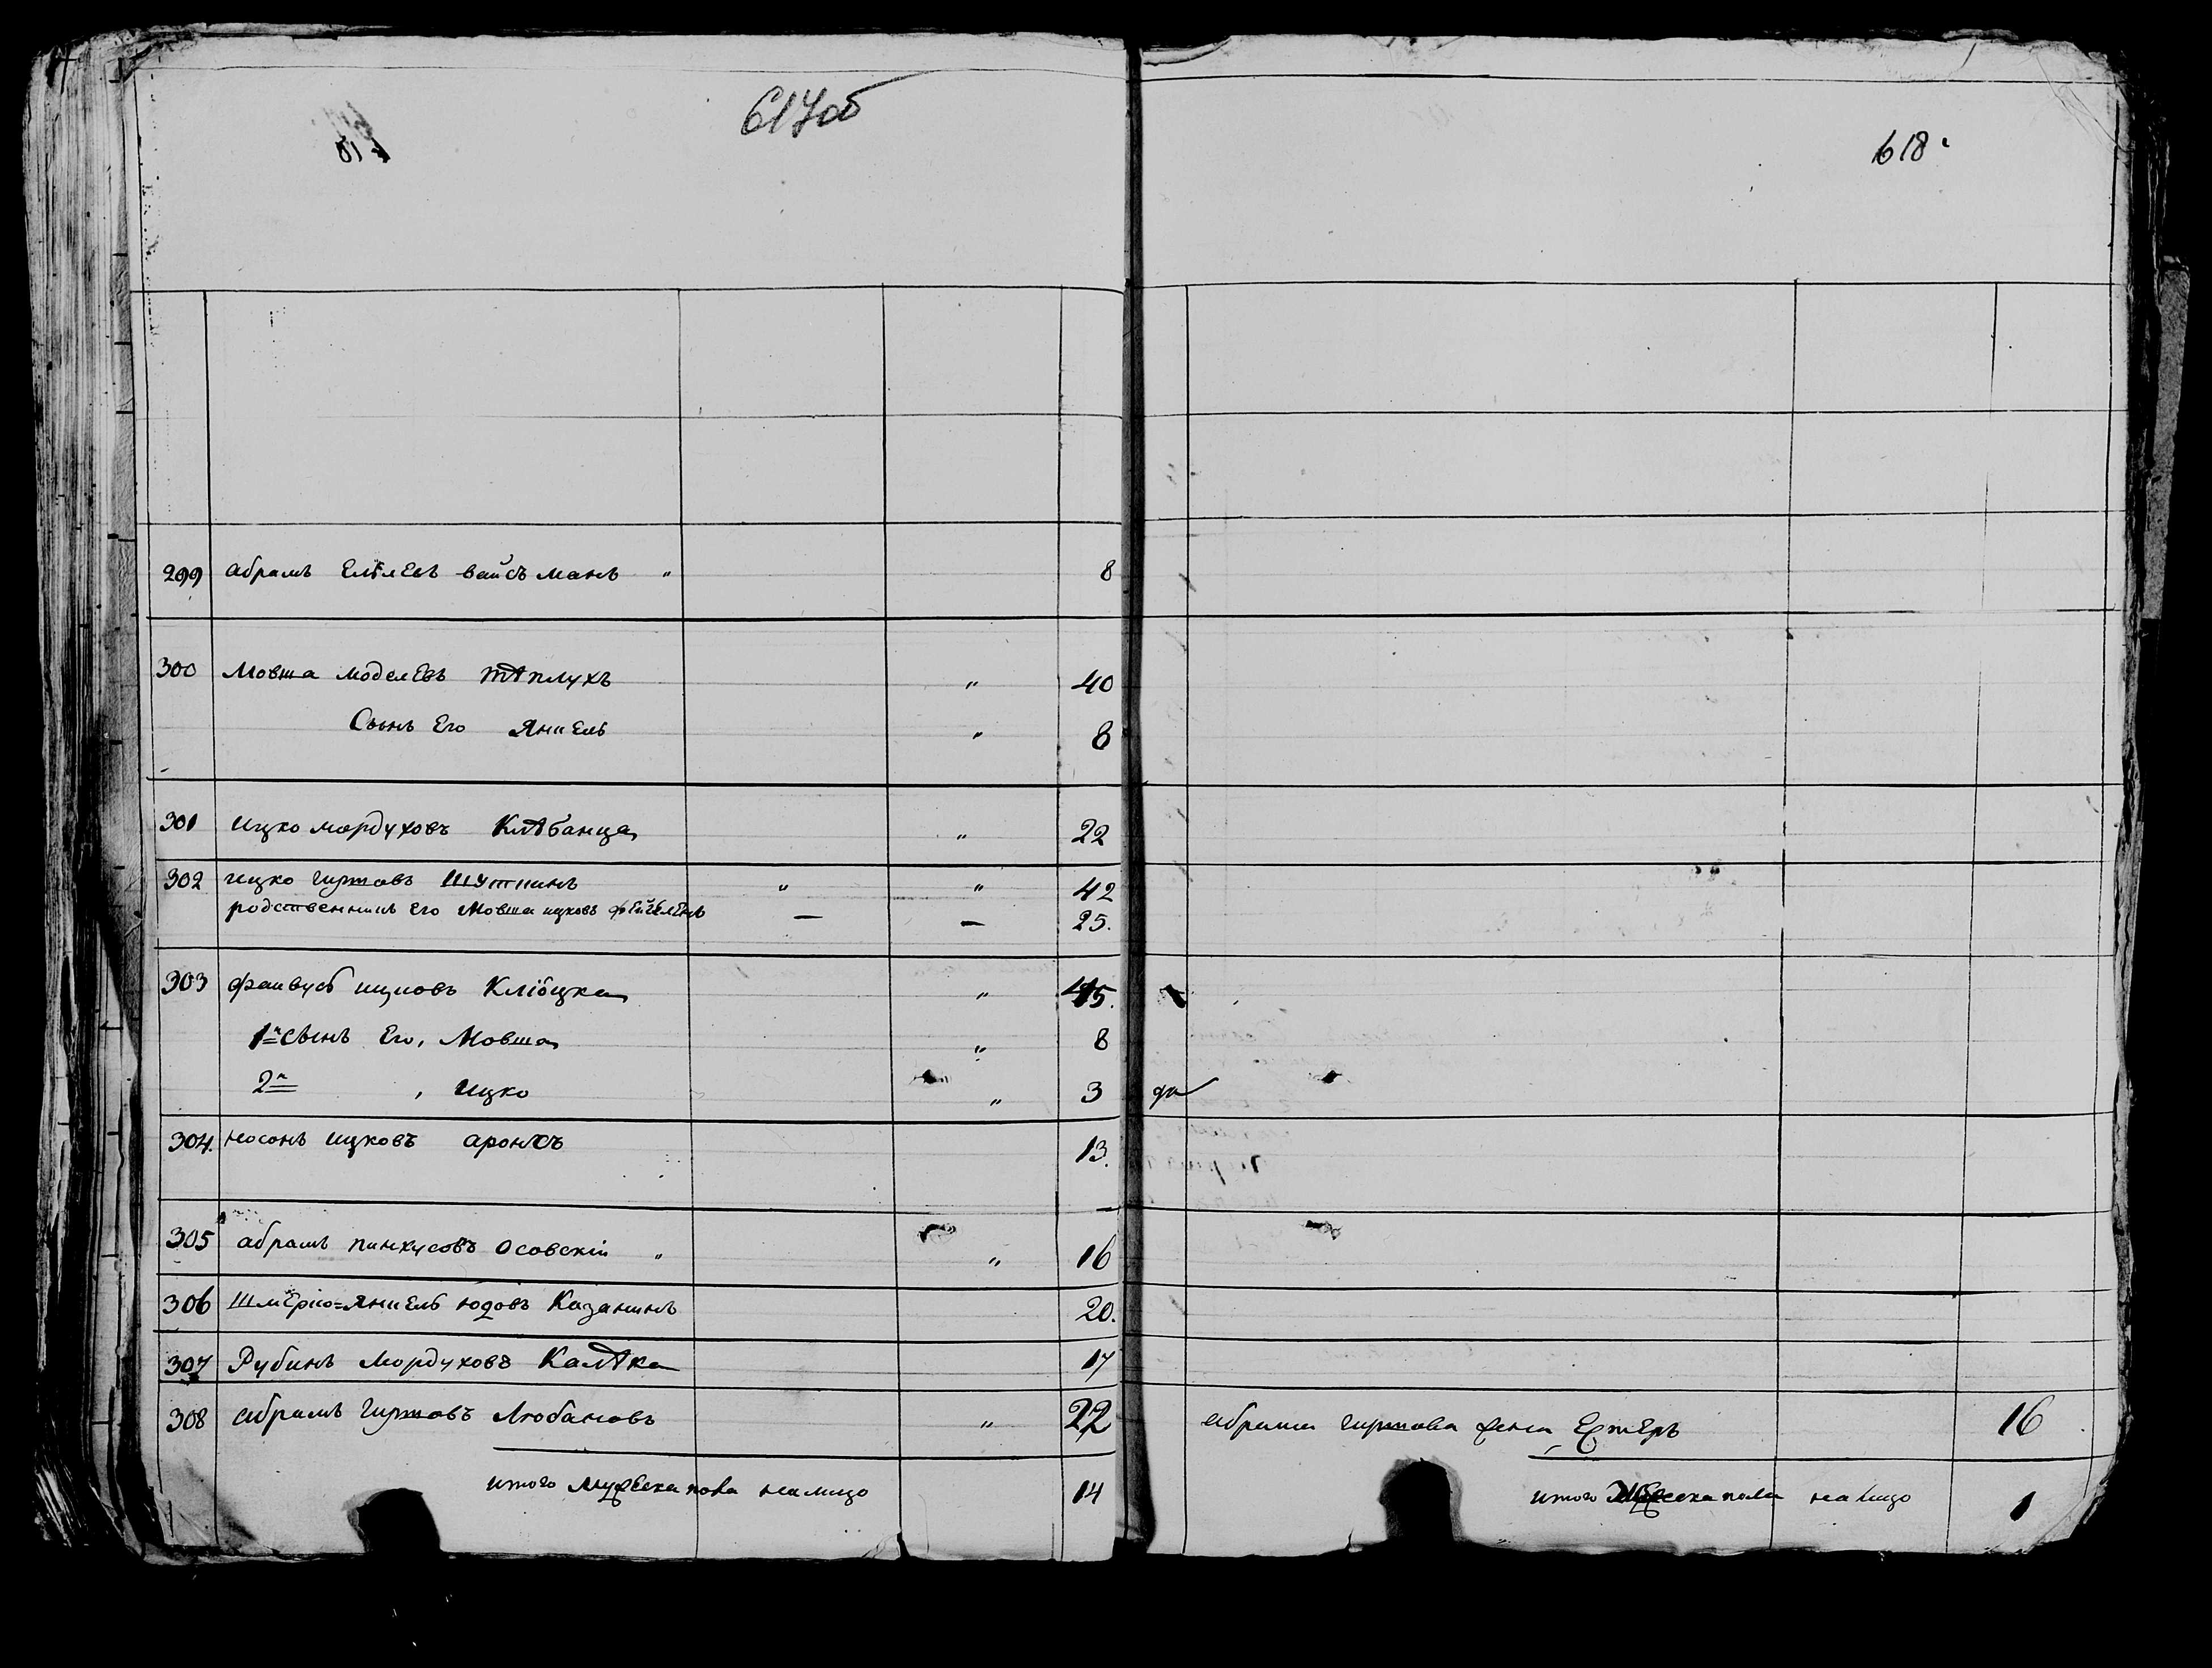 617об
618
299 абрамъ Елілевъ вайсъманъ " 8
300 Мовша моделевъ тѣплухъ " 40
Сынъ Его Янкель " 8
301 ицко мордуховъ Клѣбанца " 22
302 ицко гиршовъ Шуткинъ " " 42
родственникъ Его Мовша ицковъ — — 25.
303 файвусъ ицковъ Клібцка " 45.
1й сынъ Его, Мовша " 8
2й , ицко " 3
304. носонъ ицковъ аронсъ 13.
305 абрамъ пинхусовъ Осовскій " " 16
306 Шмерко=Янкель юдовъ Казакинъ 20.
307 Рубинъ Мордуховъ Калѣка 17
308 абрамъ гиршовъ Любановъ " 22
абрама гиршова жена Естеръ 16
итого мужеска пола налицо 14
итого пола налицо 1